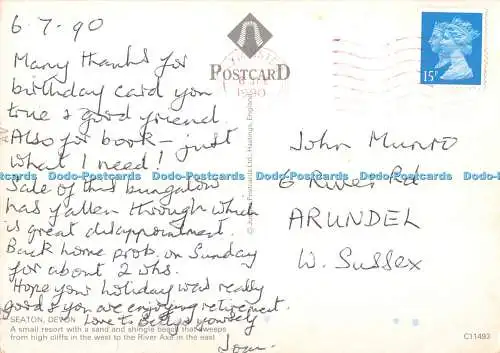 6.7.90
Many thanks for
birthday card you
true & good friend.
Also for book - just
what I need!
Sale of this bungalow
has fallen through which
is great disappointment.
Back home prob. on Sunday
for about 2 whs.
Hope your holiday was really
good & you are enjoying retirement.
Love to Betty & yourself
Joan.
SEATON, DEVON
A small resort with a sand and shingle beach that sweeps
from high cliffs in the west to the River Axe in the east
POSTCARD
1990
15P
John Munro
6 River Rd
ARUNDEL
W. Sussex
C11493
Dodo-Postcards Dodo-Postcards Dodo-Postcards Dodo-Postcards Dodo-Postcards